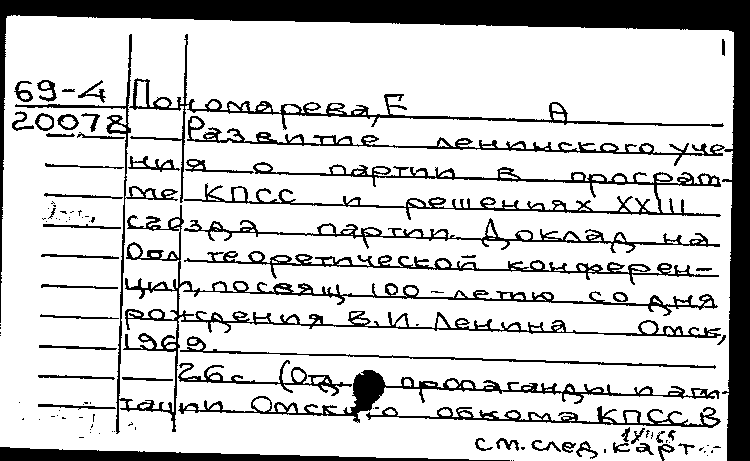 69-4 Пономарева, Е А
20078 Развитие ленинского уче-
ния о партии в програм-
ме КПСС и решениях XXIII
съезда партии. Доклад на
Обл. теоретической конферен-
ции, посвящ. 100-летию со дня
рождения В.И. Ленина. Омск,
1969.
26с. (Отд. пропаганды и аги-
тации Омского обкома КПСС. В
см. след. карт